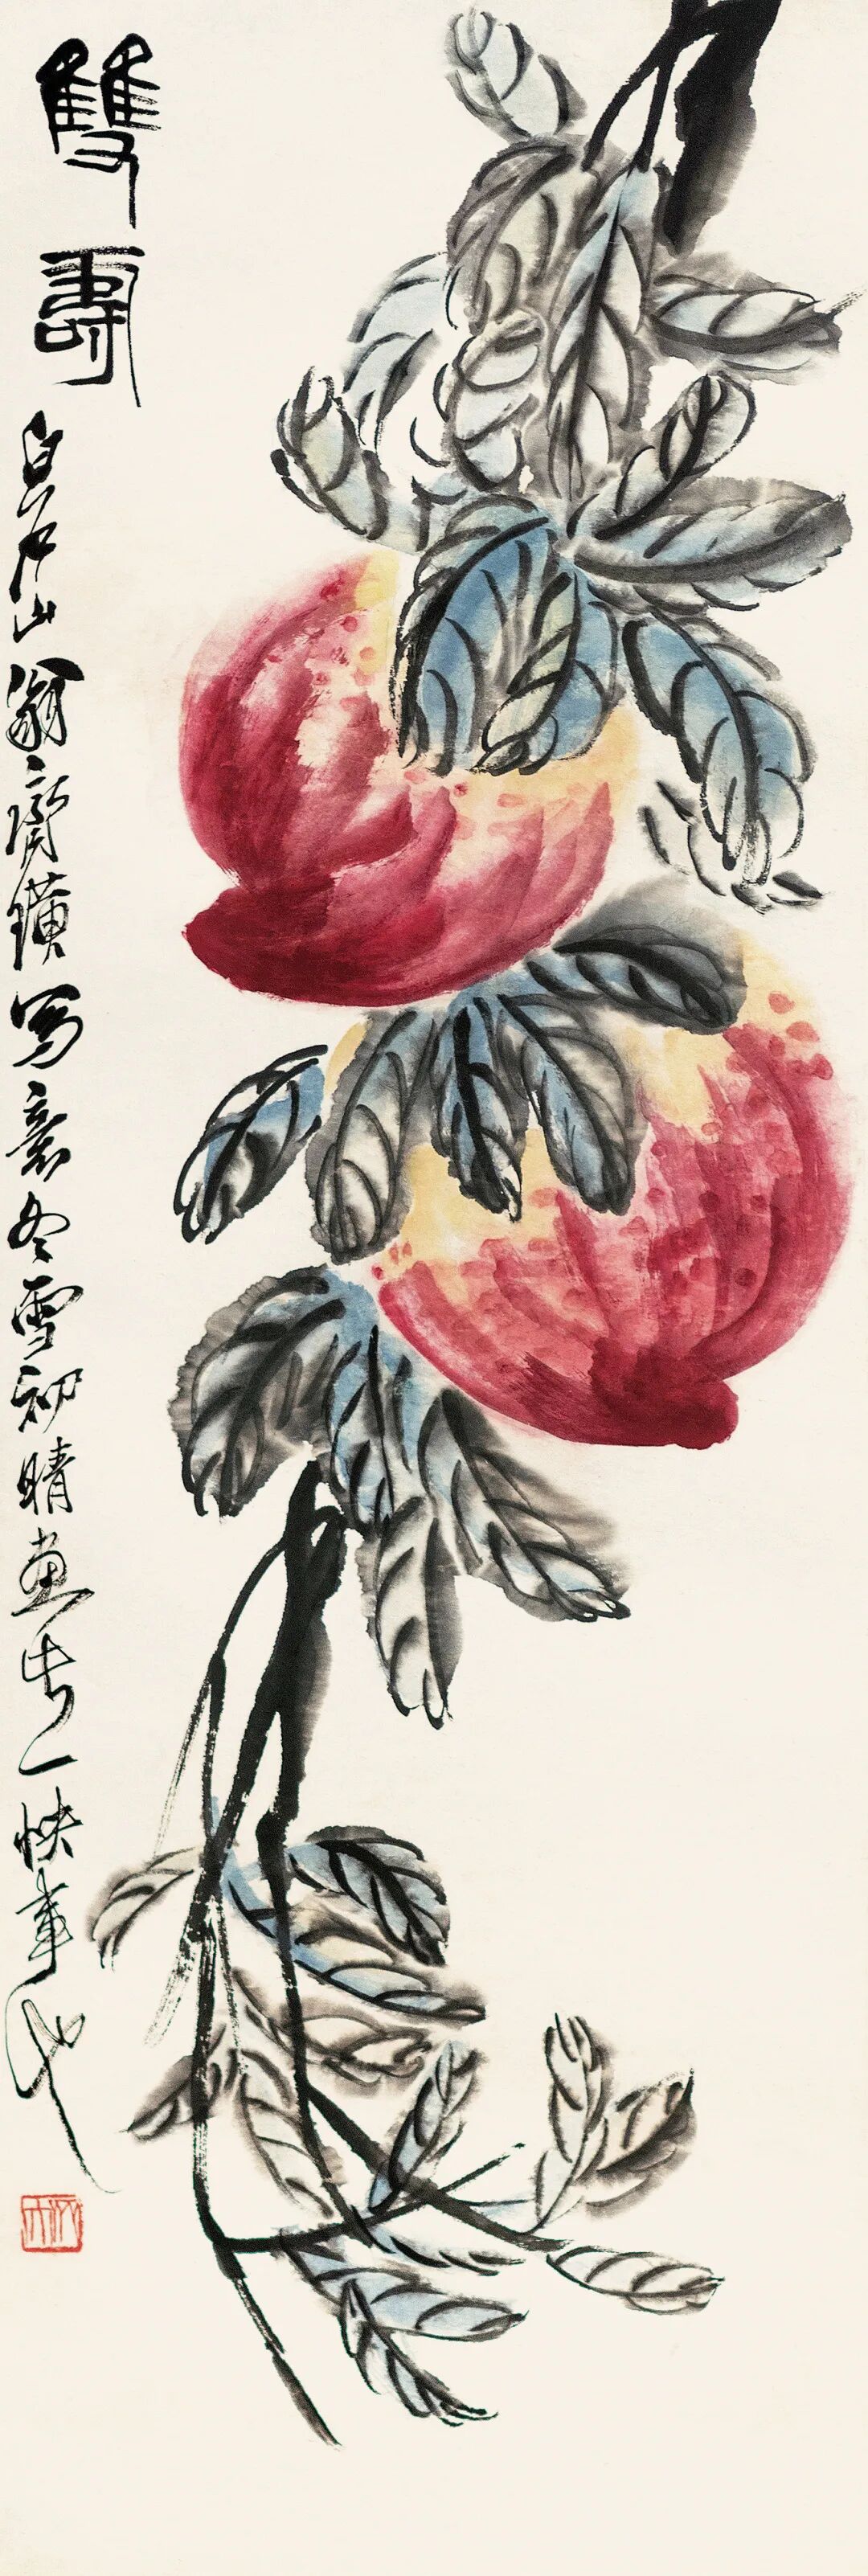 雙壽
白石山翁齊璜寫意冬雪初晴畫此一快事也